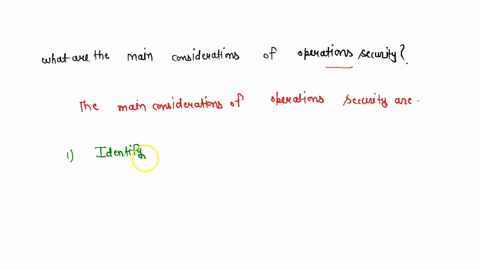 what are the main considerations of operations security?
The main considerations of operations security are.
1) Identify